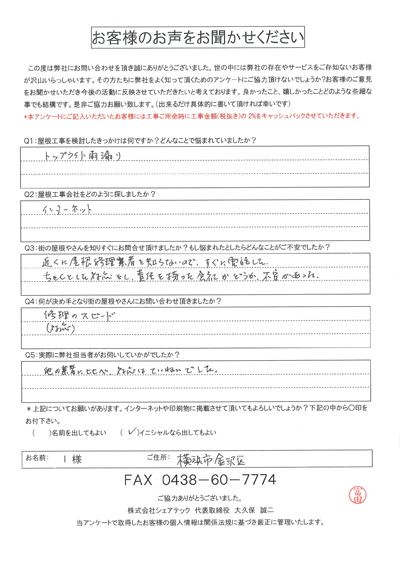 お客様のお声をお聞かせください
この度は弊社にお問い合わせを頂き誠にありがとうございました。世の中には弊社の存在やサービスをご存知ないお客様
が沢山いらっしゃいます。その方たちに弊社をよく知って頂くためのアンケートにご協力頂けないでしょうか?お客様のご意見
をお聞かせいただき今後の活動に反映させていただきたいと考えております。良かったこと、嬉しかったことどのような些細な
事でも結構です。是非ご協力お願い致します。(出来るだけ具体的に書いて頂ければ幸いです)
*本アンケートにご記入いただいたお客様には工事ご用命時に工事金額(税抜き)の2%をキャッシュバックさせていただきます。
Q1:屋根工事を検討したきっかけは何ですか?どんなことで悩まれていましたか?
トップライト雨漏り
Q2:屋根工事会社をどのように探しましたか?
インターネット
Q3:街の屋根やさんを知りすぐにお問合せ頂けましたか?もし悩まれたとしたらどんなことがご不安でしたか?
近くに屋根修理業者を知らないので、すぐに電話した。
ちゃんとした対応をし、責任を持った会社かどうか、不安があった。
Q4:何が決め手となり街の屋根やさんにお問い合わせ頂きましたか?
修理のスピード
(対応)
Q5:実際に弊社担当者がお伺いしていかがでしたか?
他の業者に比べ、対応はていねいでした。
*上記についてお願いがあります。インターネットや印刷物に掲載させて頂いてもよろしいでしょうか?下記の中から○印を
お付け下さい。
( )名前を出してもよい (✓)イニシャルなら出してもよい
お名前: I 様 ご住所: 横浜市金沢区
FAX 0438-60-7774
ご協力ありがとうございました。
株式会社シェアテック 代表取締役 大久保 誠二
当アンケートで取得したお客様の個人情報は関係法規に基づき厳正に管理いたします。
富田